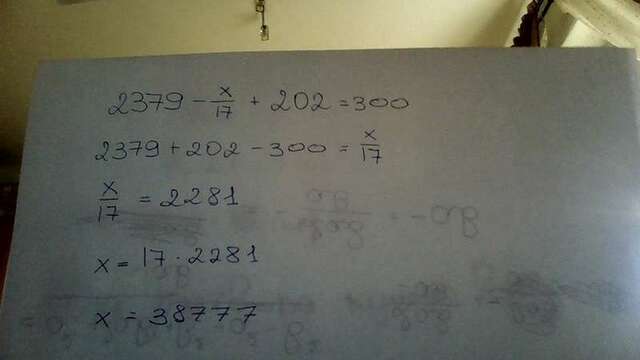 2379 - x/17 + 202 = 300
2379 + 202 - 300 = x/17
x/17 = 2281
x = 17 · 2281
x = 38777